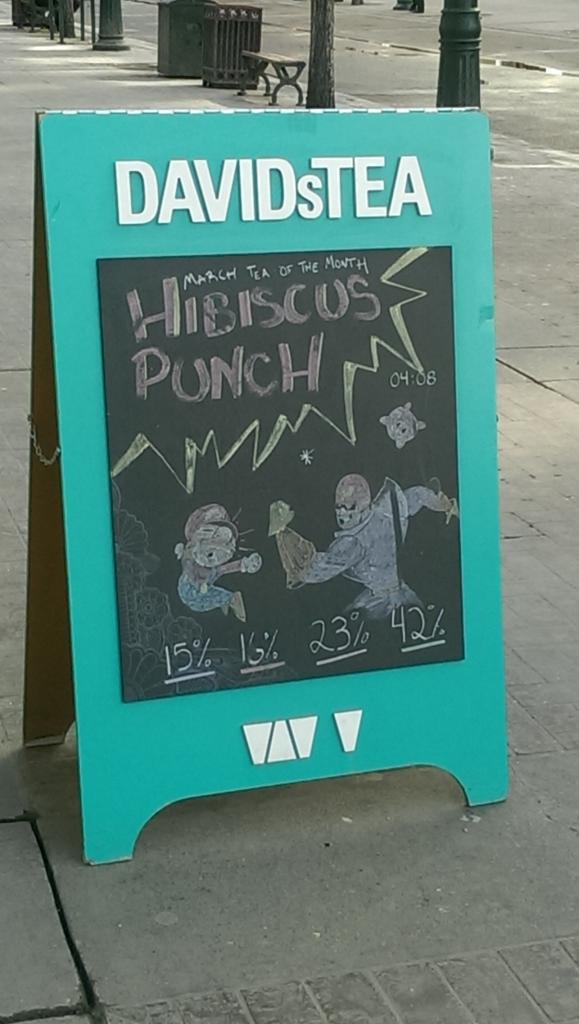 DAVIDsTEA
MARCH TEA OF THE MONTH
HIBISCUS
PUNCH
04:08
15% 16% 23% 42%